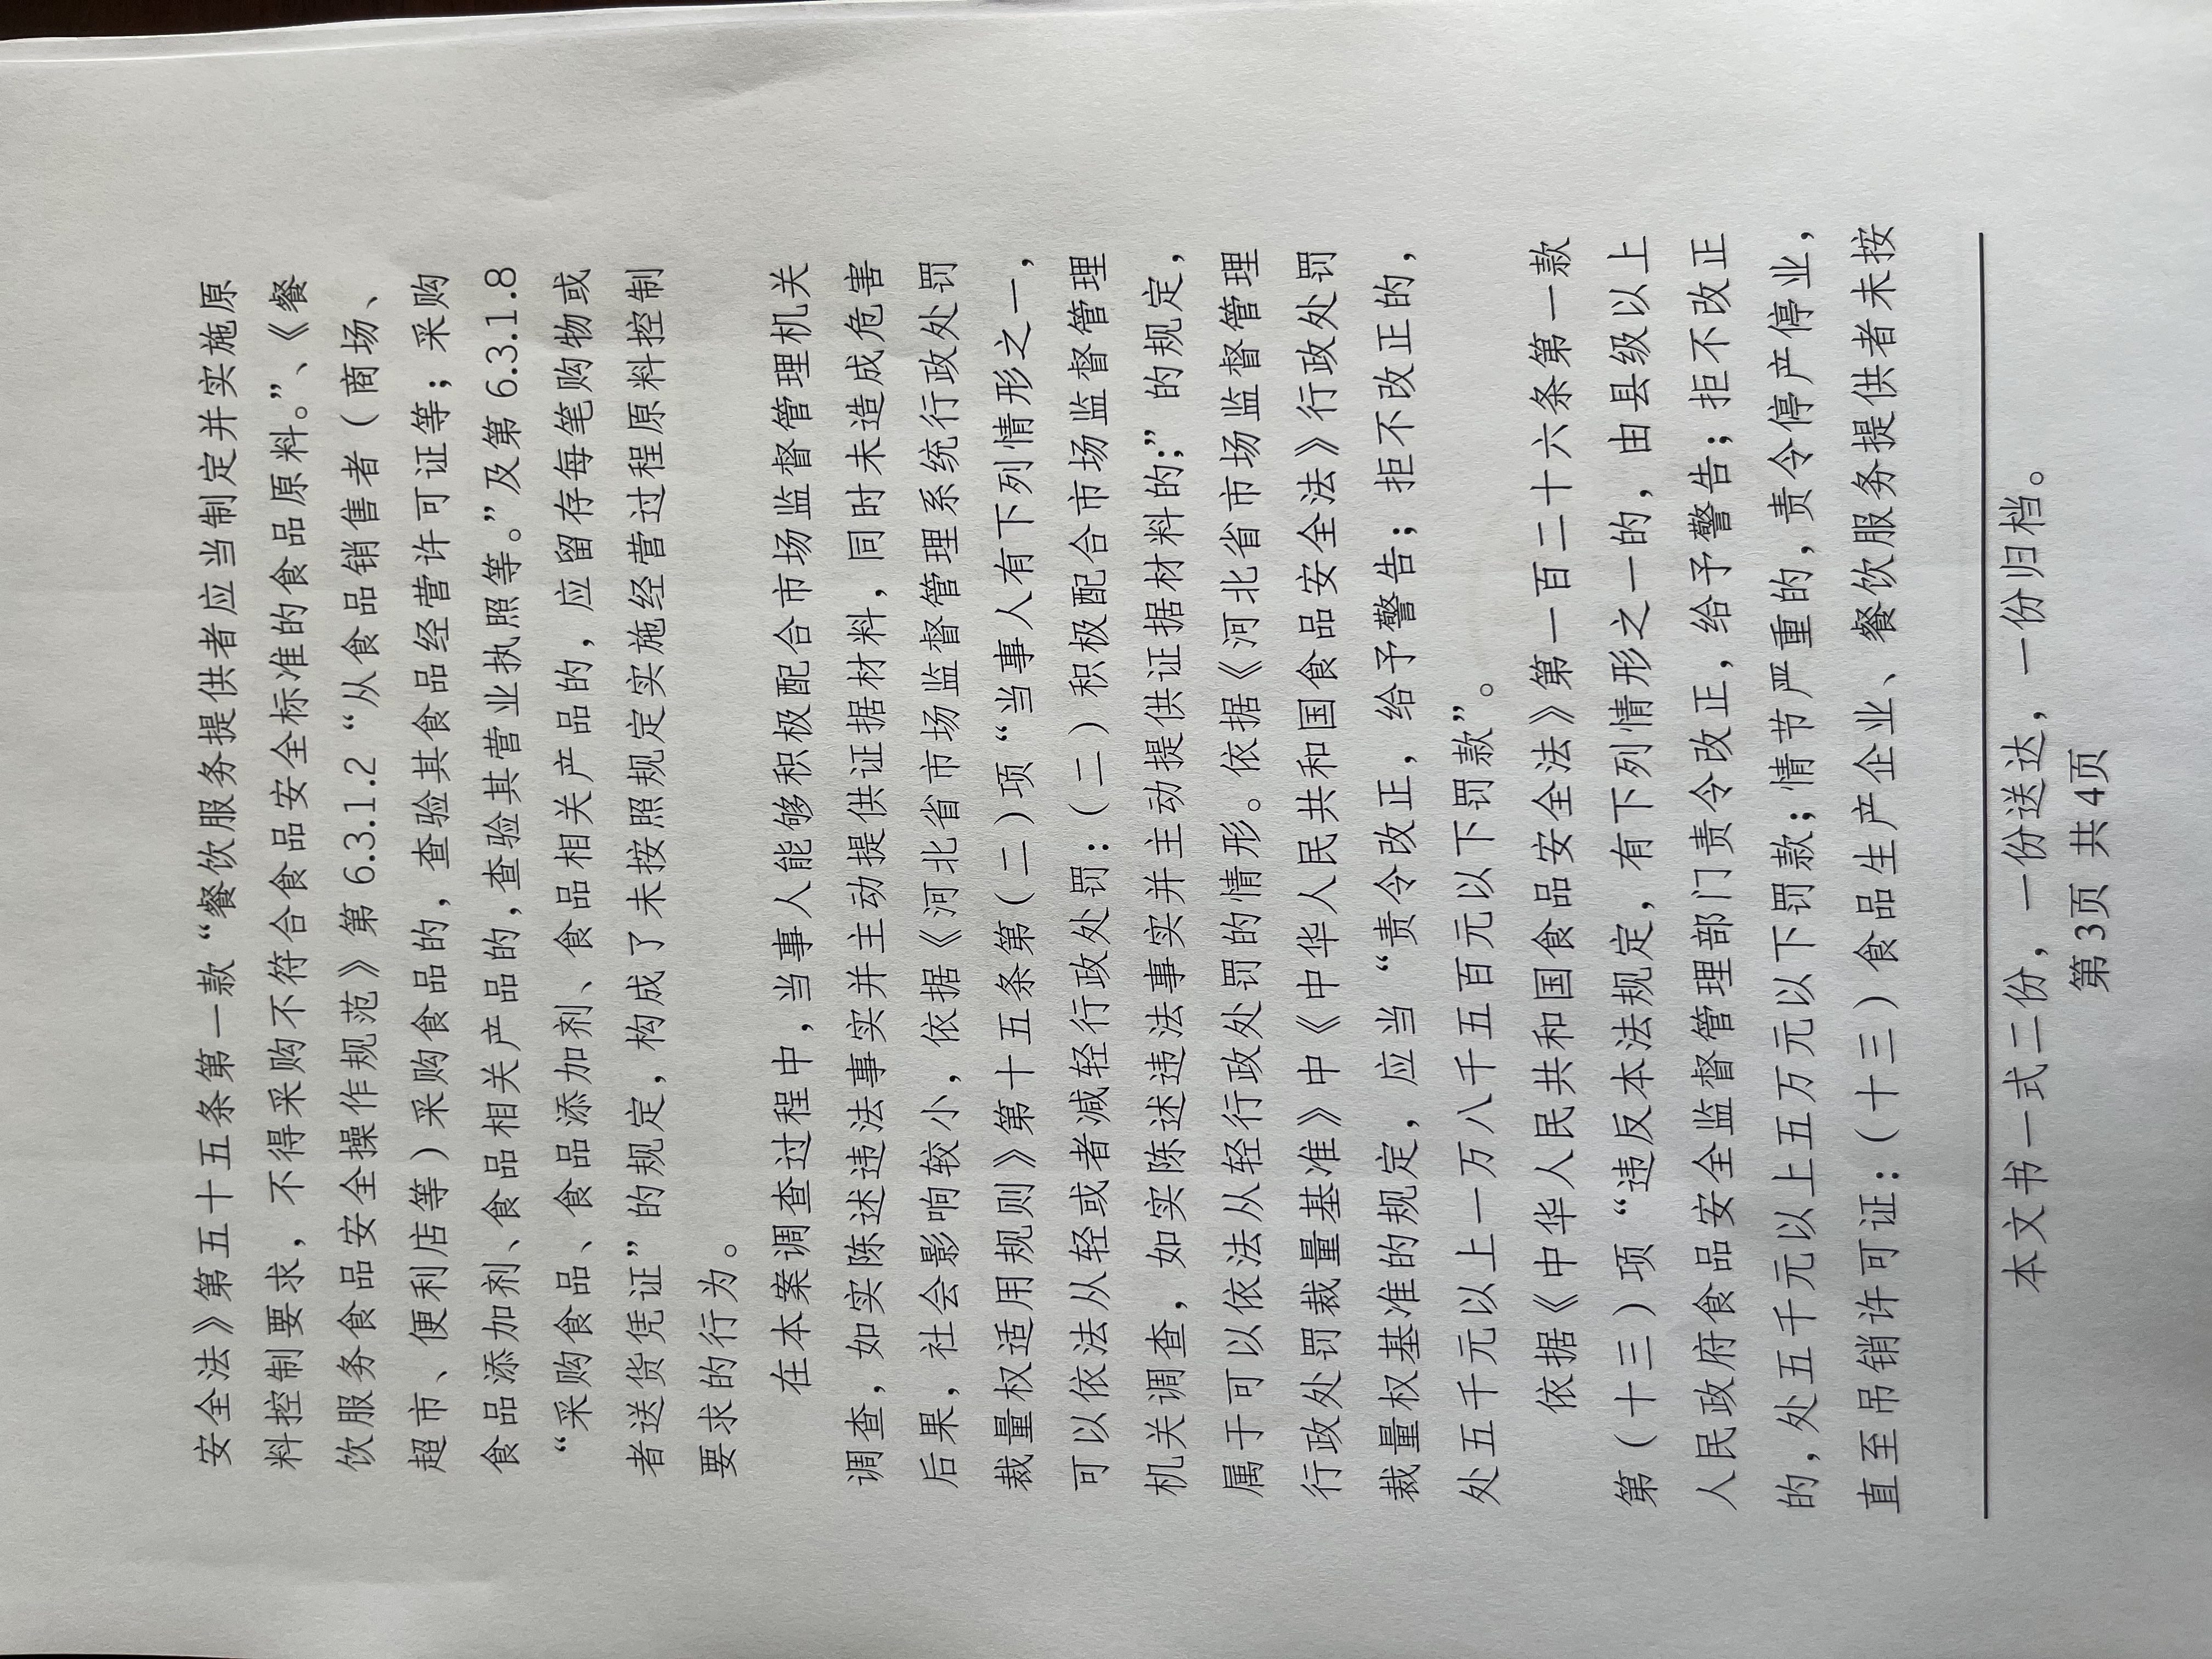 安全法》第五十五条第一款“餐饮服务提供者应当制定并实施原
料控制要求，不得采购不符合食品安全标准的食品原料。”、《餐
饮服务食品安全操作规范》第 6.3.1.2 “从食品销售者（商场、
超市、便利店等）采购食品的，查验其食品经营许可证等；采购
食品添加剂、食品相关产品的，查验其营业执照等。”及第 6.3.1.8
“采购食品、食品添加剂、食品相关产品的，应留存每笔购物或
者送货凭证”的规定，构成了未按照规定实施经营过程原料控制
要求的行为。
在本案调查过程中，当事人能够积极配合市场监督管理机关
调查，如实陈述违法事实并主动提供证据材料，同时未造成危害
后果，社会影响较小，依据《河北省市场监督管理系统行政处罚
裁量权适用规则》第十五条第（二）项“当事人有下列情形之一，
可以依法从轻或者减轻行政处罚：（二）积极配合市场监督管理
机关调查，如实陈述违法事实并主动提供证据材料的；”的规定，
属于可以依法从轻行政处罚的情形。依据《河北省市场监督管理
行政处罚裁量基准》中《中华人民共和国食品安全法》行政处罚
裁量权基准的规定，应当“责令改正，给予警告；拒不改正的，
处五千元以上一万八千五百元以下罚款”。
依据《中华人民共和国食品安全法》第一百二十六条第一款
第（十三）项“违反本法规定，有下列情形之一的，由县级以上
人民政府食品安全监督管理部门责令改正，给予警告；拒不改正
的，处五千元以上五万元以下罚款；情节严重的，责令停产停业，
直至吊销许可证：（十三）食品生产企业、餐饮服务提供者未按
本文书一式二份，一份送达，一份归档。
第3页 共4页